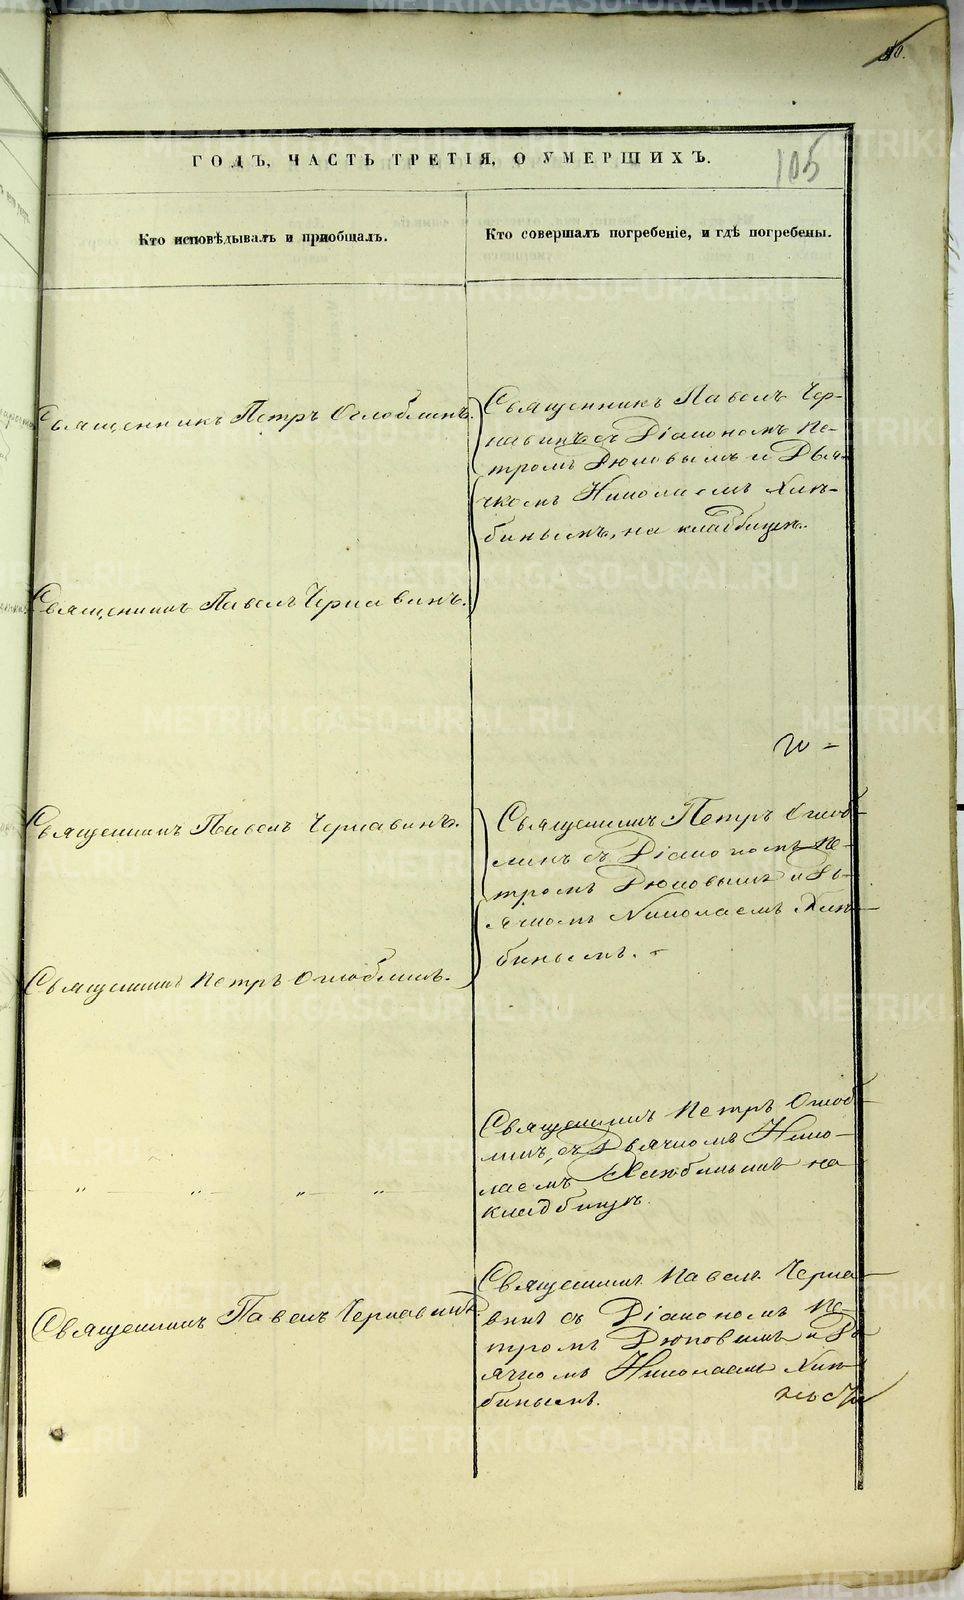 105
ГОДЪ, ЧАСТЬ ТРЕТІЯ, О УМЕРШИХЪ.
Кто исповѣдывалъ и приобщалъ.
Кто совершалъ погребеніе, и гдѣ погребены.
Священникъ Петръ Оглоблинъ.
Священникъ Павелъ Чер-
навинъ съ Діакономъ Пе-
тромъ Дюковымъ и Дья-
чкомъ Николаемъ Хлѣ-
бинымъ, на кладбищѣ.
Священникъ Павелъ Чернавинъ.
Священникъ Павелъ Чернавинъ.
Священникъ Петръ Оглоб-
линъ съ Діакономъ Пе-
тромъ Дюковымъ и Дь-
ячкомъ Николаемъ Хлѣ-
бинымъ.
Священникъ Петръ Оглоблинъ.
Священникъ Петръ Оглоб-
линъ, съ Дьячкомъ Нико-
лаемъ Хлѣбинымъ на
кладбищѣ.
" " " "
Священникъ Павелъ Чернавинъ.
Священникъ Павелъ Черна-
винъ съ Діакономъ Пе-
тромъ Дюковымъ и Дь-
ячкомъ Николаемъ Хлѣ-
бинымъ.
METRIKI.GASO-URAL.RU